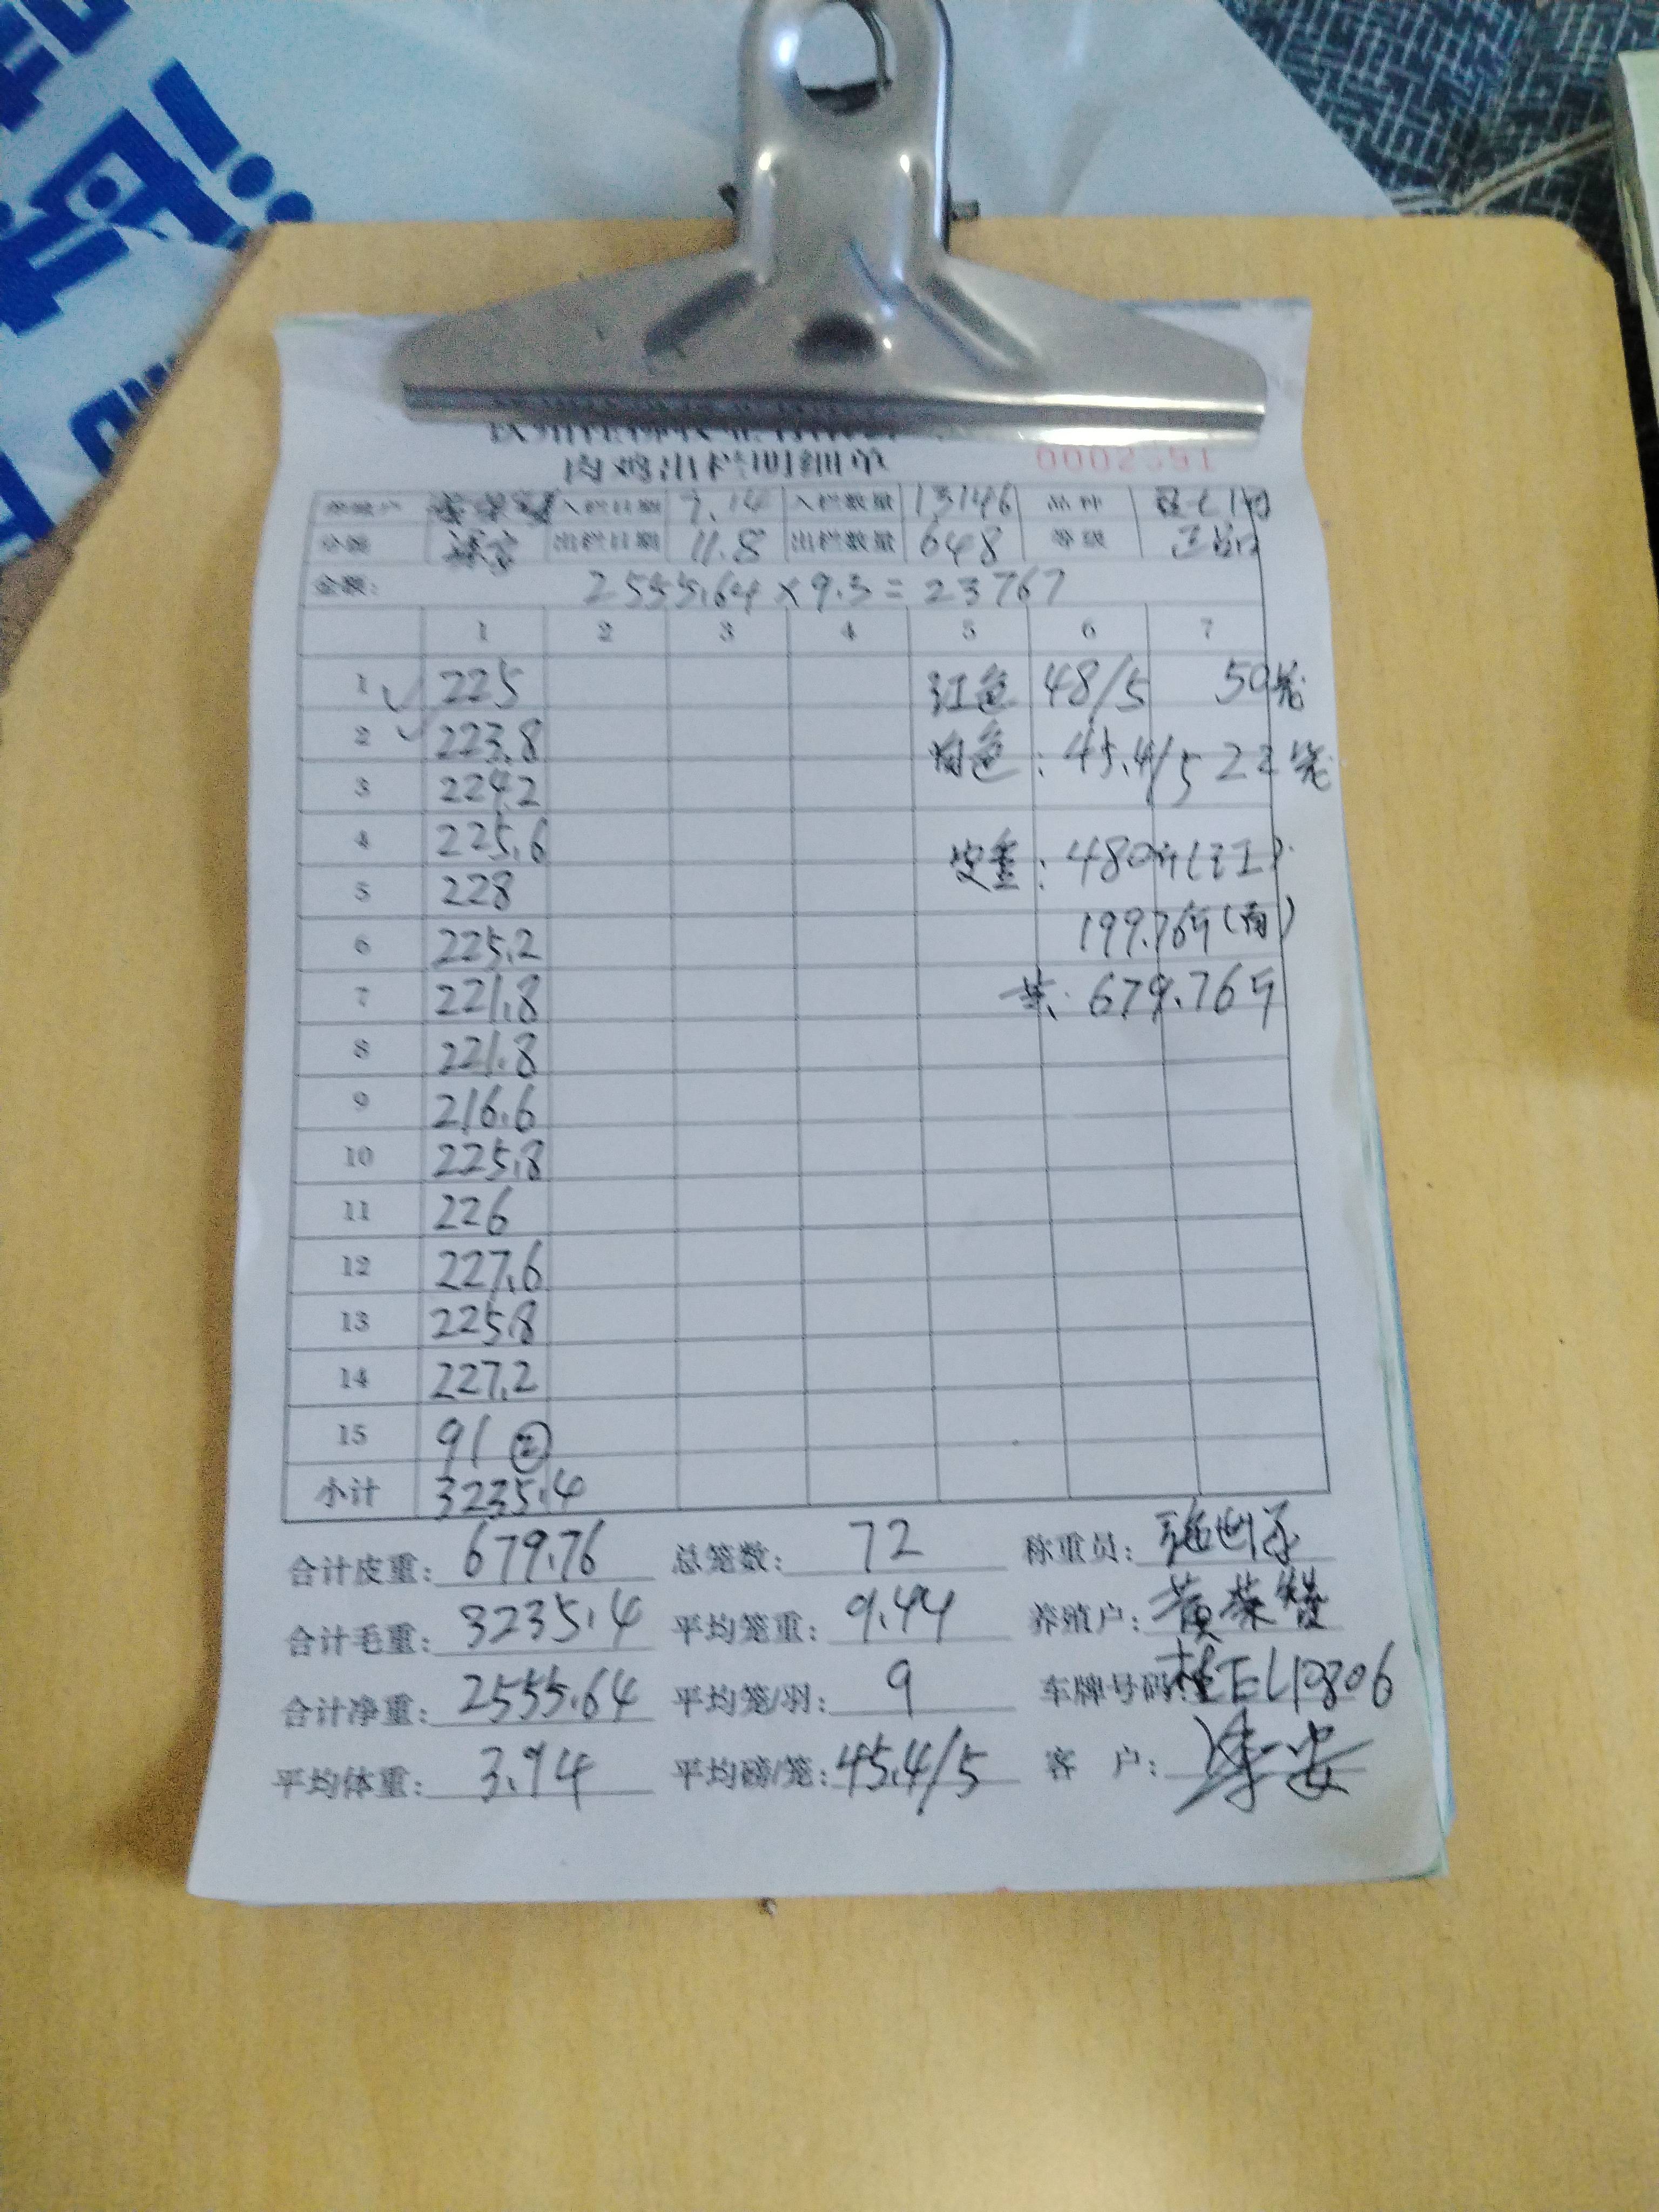 肉鸡出栏明细单
入栏日期 9.14 入栏数量 13146 品种
出栏日期 11.8 出栏数量 648 等级 正品
金额: 2555.64×9.3=23767
1 2 3 4 5 6 7
1 225 红色 48/5 50笼
2 223.8 白色: 45.4/5 22笼
3 224.2
4 225.6 皮重: 480斤(红)
5 228
6 225.2 199.76斤(白)
7 221.8 共: 679.76斤
8 221.8
9 216.6
10 225.8
11 226
12 227.6
13 225.8
14 227.2
15 91 ②
小计 3235.4
合计皮重: 679.76 总笼数: 72 称重员:
合计毛重: 3235.4 平均笼重: 9.44 养殖户: 黄荣
合计净重: 2555.64 平均笼/羽: 9 车牌号码:
平均体重: 3.94 平均磅/笼: 45.4/5 客 户: